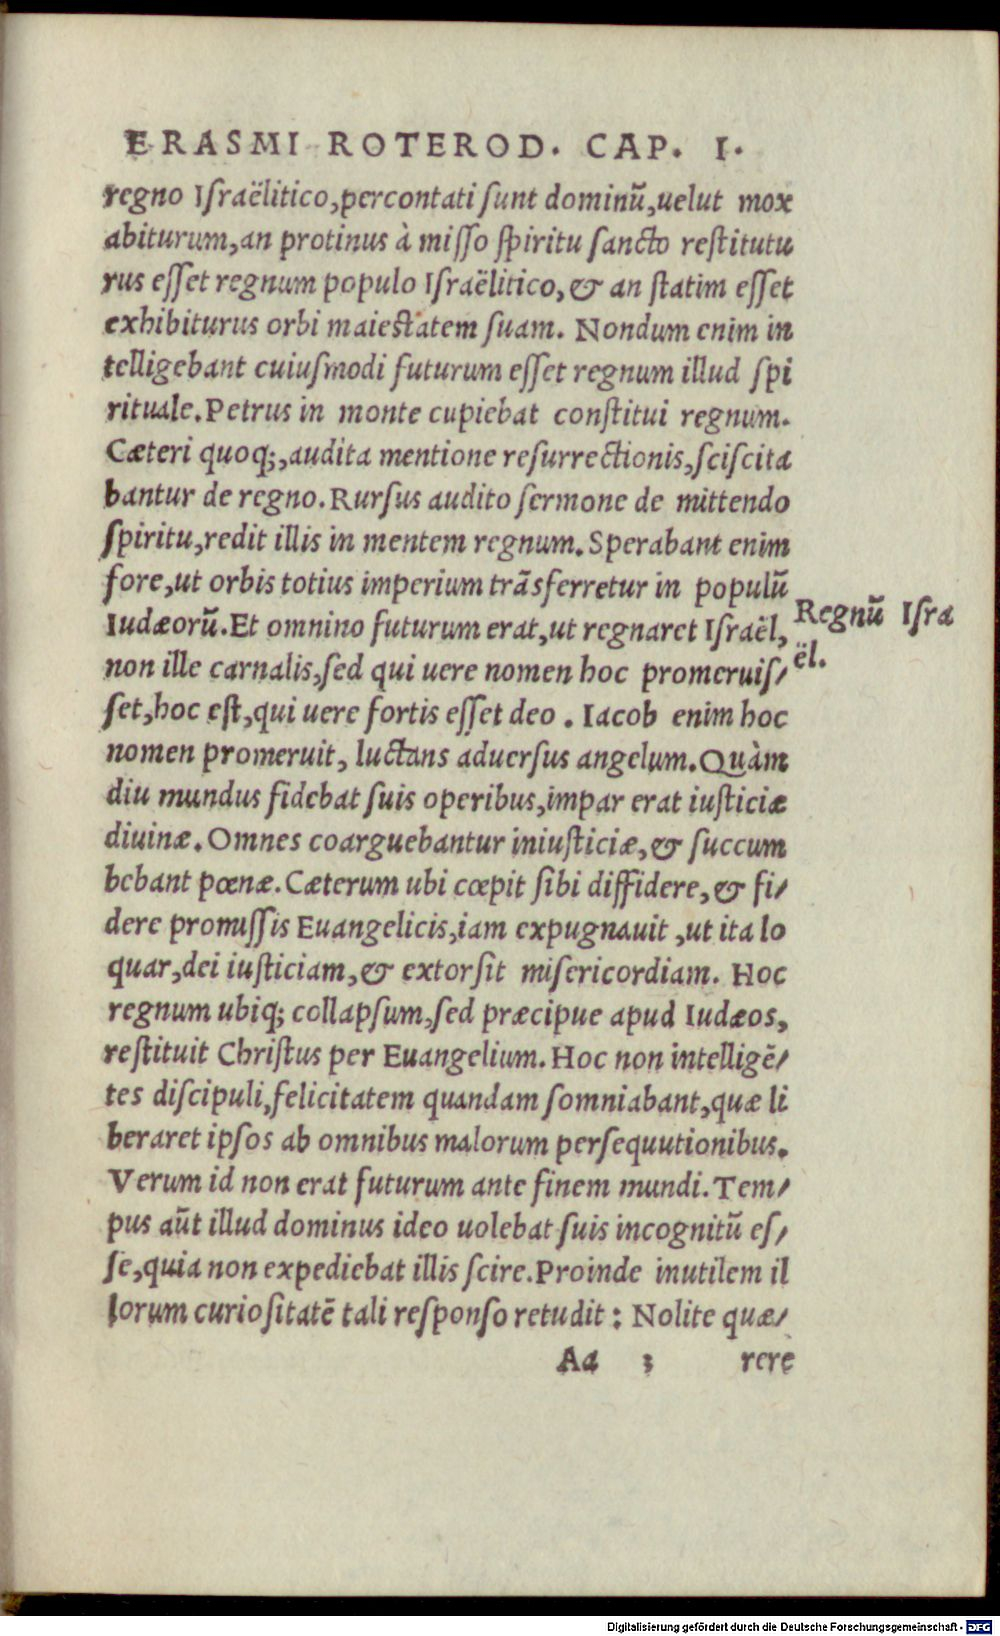 ERASMI ROTEROD. CAP. I.
regno Iſraëlitico,percontati ſunt dominũ,uelut mox
abiturum,an protinus à miſſo ſpiritu ſancto reſtitutu
rus eſſet regnum populo Iſraëlitico,& an ſtatim eſſet
exhibiturus orbi maieſtatem ſuam. Nondum enim in
telligebant cuiuſmodi futurum eſſet regnum illud ſpi
rituale.Petrus in monte cupiebat conſtitui regnum.
Cæteri quoq;,audita mentione reſurrectionis,ſciſcita
bantur de regno.Rurſus audito ſermone de mittendo
ſpiritu,redit illis in mentem regnum.Sperabant enim
fore,ut orbis totius imperium trãsferretur in populũ
Iudæorũ.Et omnino futurum erat,ut regnaret Iſraël,
Regnũ Iſra
ël.
non ille carnalis,ſed qui uere nomen hoc promeruiſ/
ſet,hoc eſt,qui uere fortis eſſet deo . Iacob enim hoc
nomen promeruit, luctans aduerſus angelum.Quàm
diu mundus fidebat ſuis operibus,impar erat iuſticiæ
diuinæ.Omnes coarguebantur iniuſticiæ,& ſuccum
bebant pœnæ.Cæterum ubi cœpit ſibi diffidere,& fi/
dere promiſſis Euangelicis,iam expugnauit ,ut ita lo
quar,dei iuſticiam,& extorſit miſericordiam. Hoc
regnum ubiq; collapſum,ſed præcipue apud Iudæos,
reſtituit Chriſtus per Euangelium.Hoc non intelligẽ/
tes diſcipuli,felicitatem quandam ſomniabant,quæ li
beraret ipſos ab omnibus malorum perſequutionibus.
Verum id non erat futurum ante finem mundi.Tem/
pus aũt illud dominus ideo uolebat ſuis incognitũ eſ/
ſe,quia non expediebat illis ſcire.Proinde inutilem il
lorum curioſitatẽ tali reſponſo retudit : Nolite quæ/
Aa 3 rere
Digitalisierung gefördert durch die Deutsche Forschungsgemeinschaft - DFG